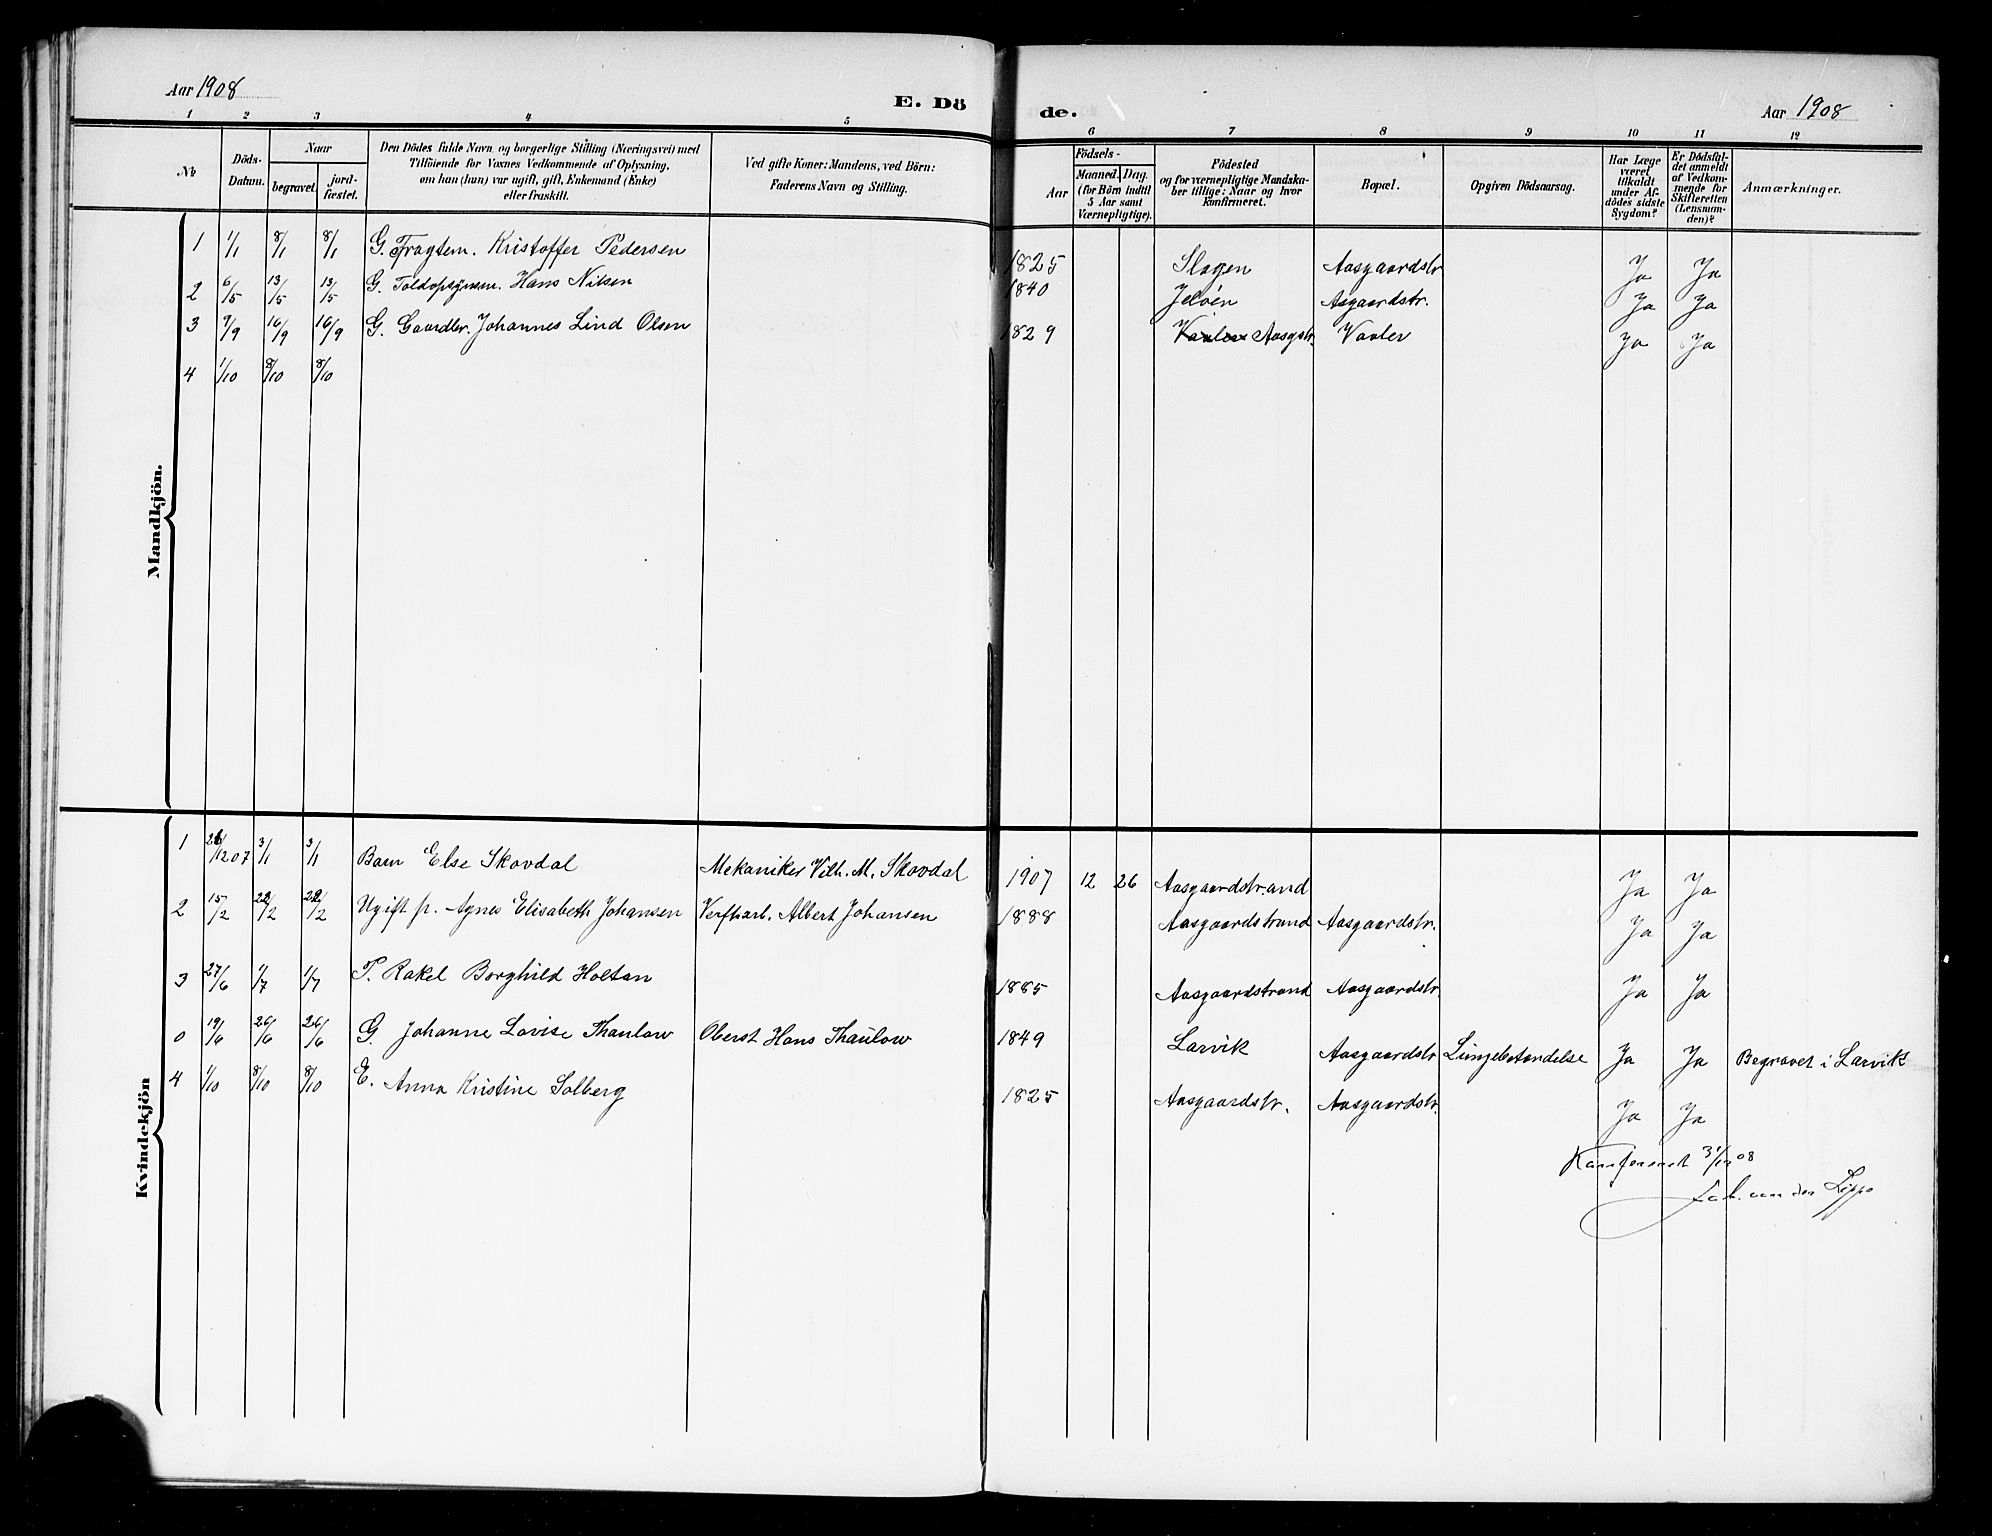 Aar 1908
E. Dö
de.
Aar 1908
1 2 3 4 5
6 7 8 9 10 11 12
No
Döds-Datum.
Naar
begravet.
jordfæstet.
Den Dödes fulde Navn og borgerlige Stilling (Næringsvei) med
Tilföiende for Voxnes Vedkommende af Oplysning,
om han (hun) var ugift, gift, Enkemand (Enke)
eller fraskilt.
Ved gifte Koner: Mandens, ved Börn:
Faderens Navn og Stilling.
Födsels-
Aar
Maaned. Dag.
(for Börn indtil
5 Aar samt
Værnepligtige).
Födested
og for værnepligtige Mandska-
ber tillige: Naar og hvor
konfirmeret.
Bopæl.
Opgiven Dödsaarsag.
Har Læge
været
tilkaldt
under Af-
dödes sidste
Sygdom?
Er Dödsfal-
det anmeldt
af Vedkom-
mende for
Skifteretten
(Lensman-
den)?
Anmærkninger.
Mandkjön.
1 1/1 8/1 8/1 G. Fragtem. Kristoffer Pedersen 1825 Slagen Aasgaardstr Ja Ja
2 6/5 13/5 13/5 G. Toldopsynsm. Hans Nilsen 1840 Jelöen Asgaardstr. Ja Ja
3 9/9 16/9 16/9 G. Gaardbr. Johannes Lind Olsen 1829 Vaaler Aasgstr. Vaaler Ja Ja
4 1/10 8/10 8/10
Kvindekjön
1 26/12 07 3/1 3/1 Barn Else Skovdal Mekaniker Vilh. M. Skovdal 1907 12 26 Aasgaardstrand Ja Ja
2 15/2 22/2 22/2 Ugift p. Agnes Elisabeth Johansen Verftarb. Albert Johansen 1888 Aasgaardstrand Aasgaardstr. Ja Ja
3 27/6 1/7 1/7 P. Rakel Borghild Holtan 1885 Aasgaardstrand Aasgaardstr. Ja Ja
0 19/6 26/6 26/6 G. Johanne Lovise Thaulow Oberst Hans Thaulow 1849 Larvik Aasgaardstr Lungebetændelse Ja Ja Begravet i Larvik
4 1/10 8/10 8/10 E. Anna Kristine Solberg 1825 Aasgaardstr. Aasgaardstr. Ja Ja
Konfereret 31/12 08
Jak. van der Lippe